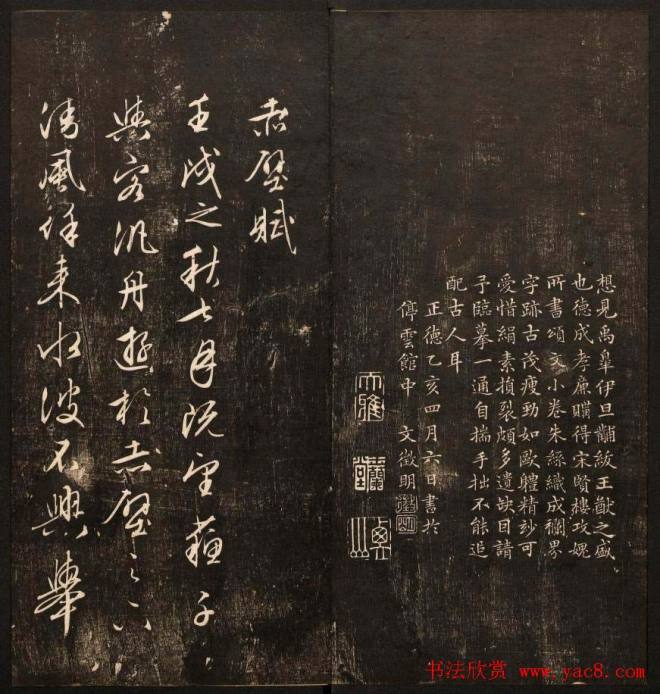 想見禹皋伊旦黼紱王猷之盛
也德成孝廉購得宋賢樓攻媿
所書頌文小卷朱絲織成襴界
字跡古茂瘦勁如歐體精妙可
愛惜絹素損裂頗多遺缺因請
予臨摹一通自揣手拙不能追
配古人耳
正德乙亥四月六日書於
停雲館中 文徵明
赤壁賦
壬戌之秋七月既望蘇子
與客汎舟遊於赤壁之下
清風徐來水波不興舉
书法欣赏 www.yac8.com